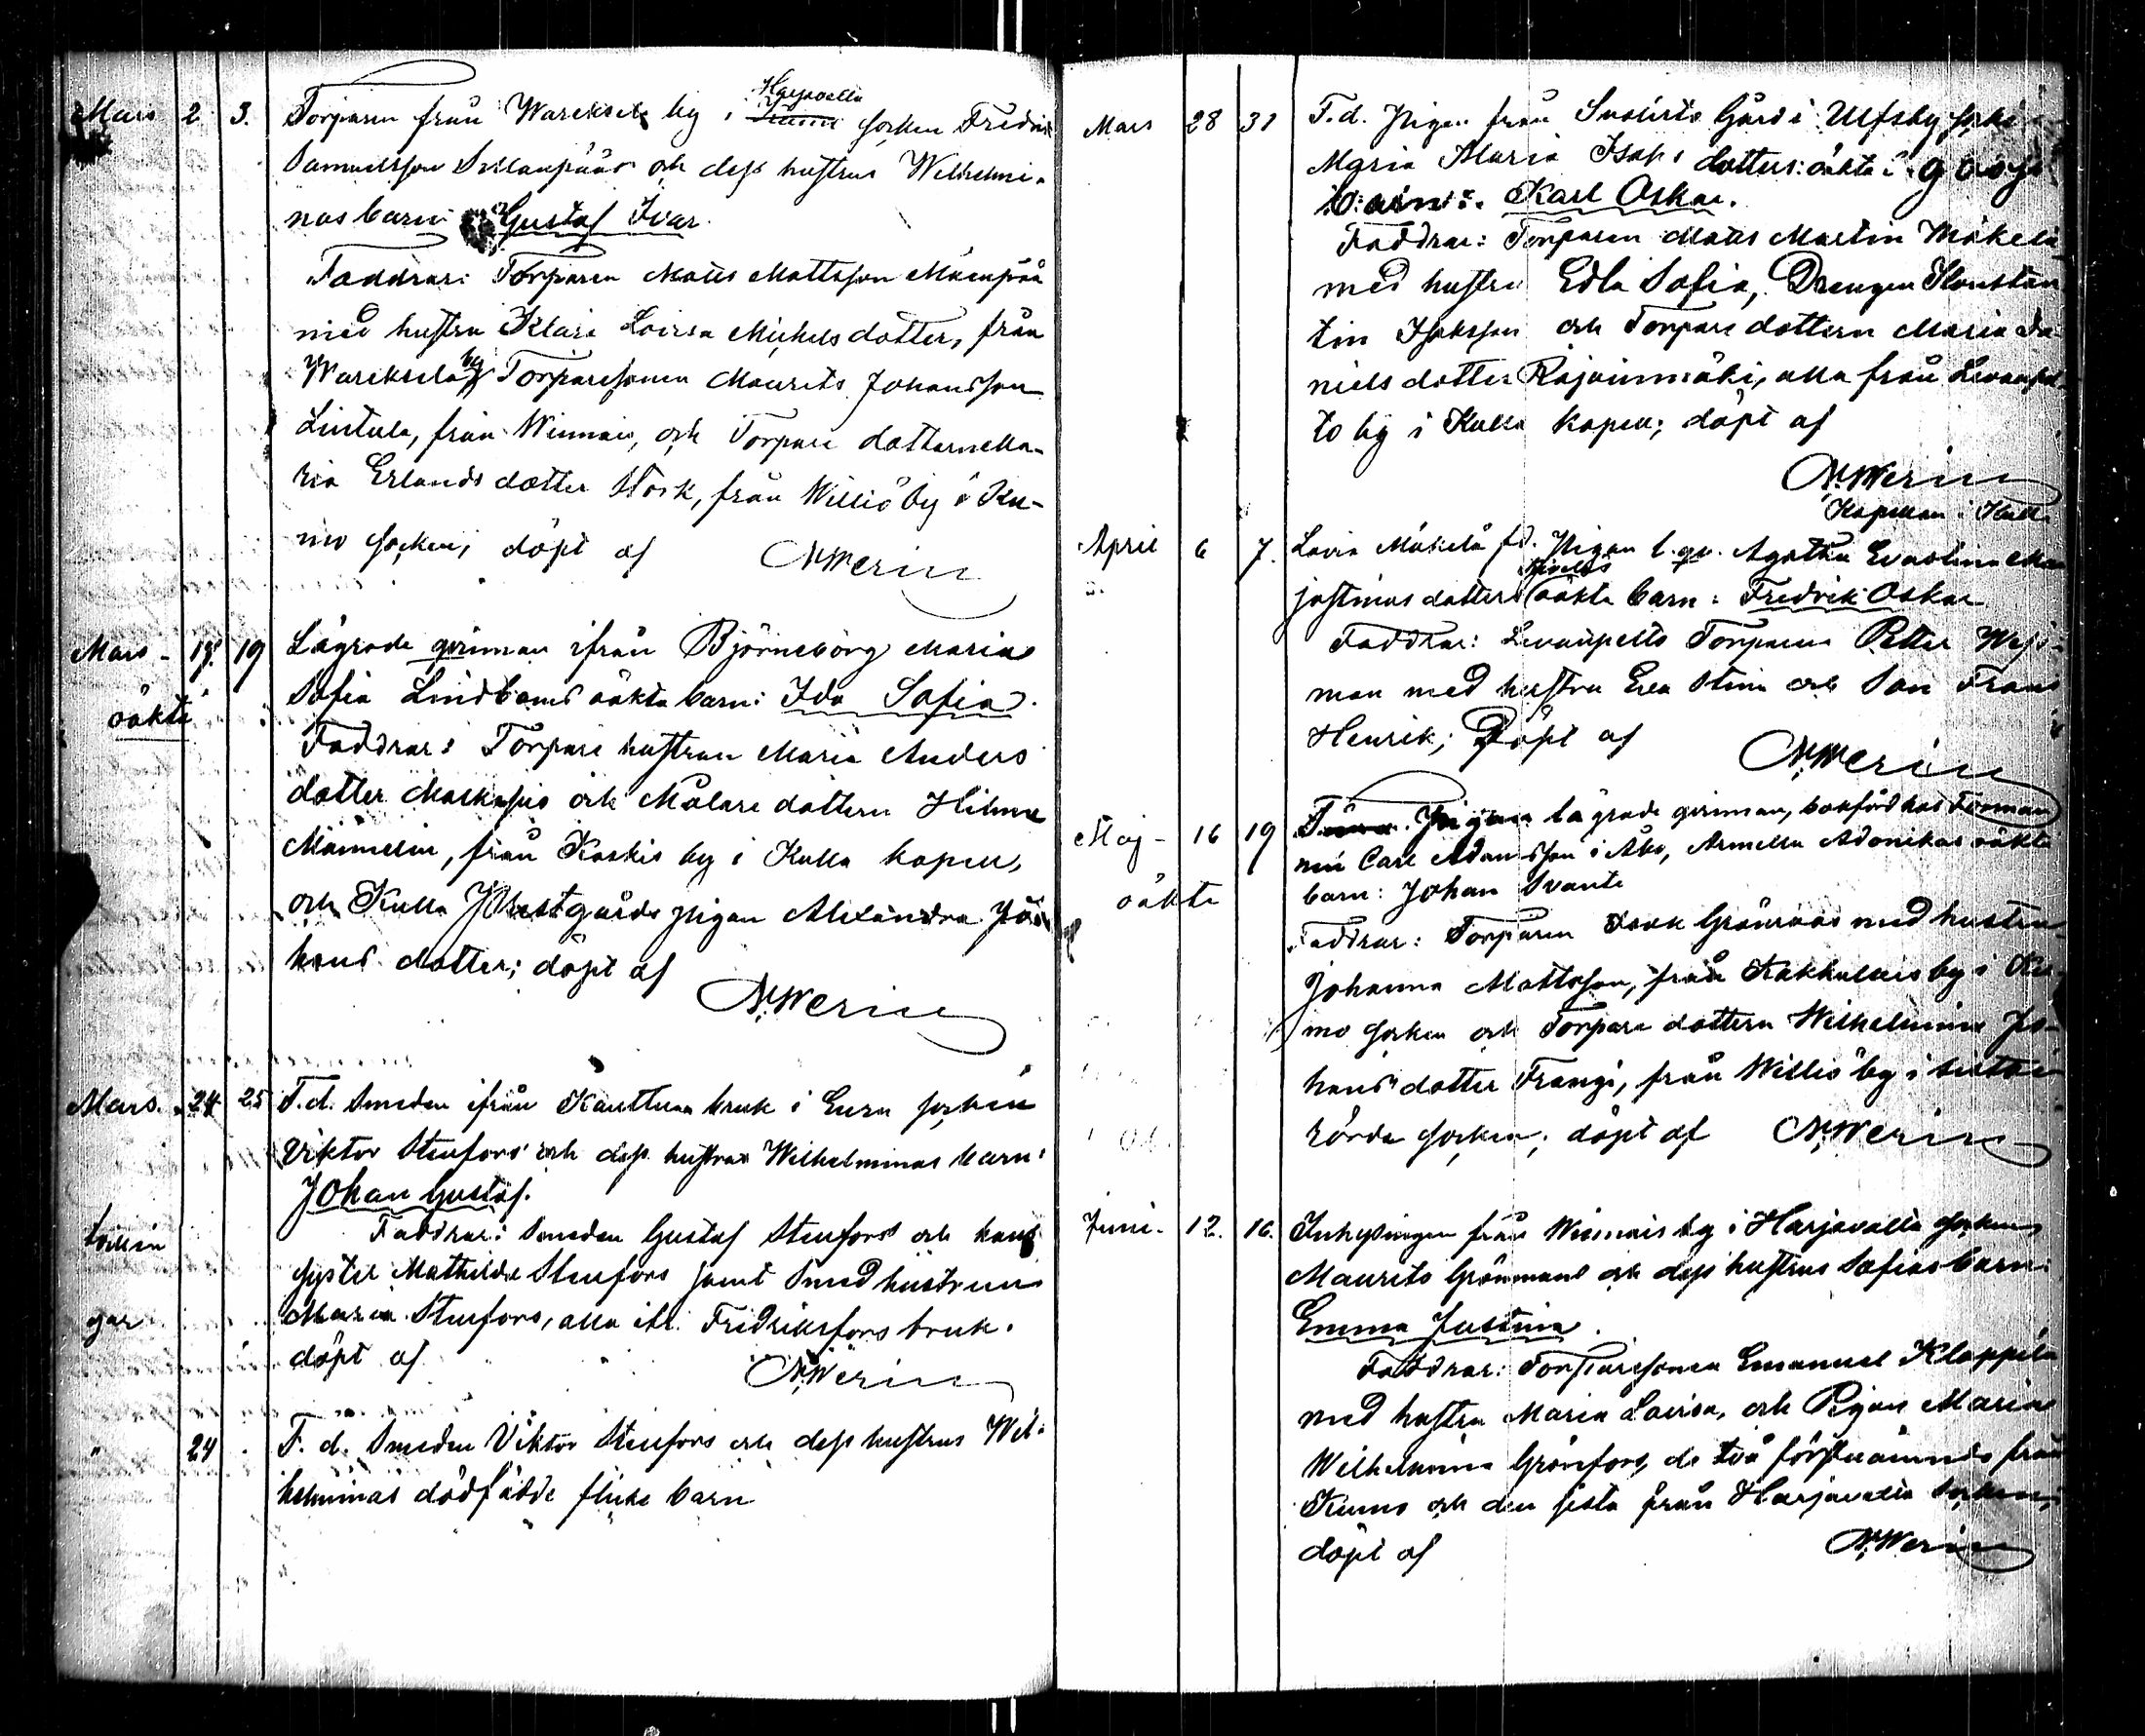 Mars 2 3. Torparen från Wareksela by i Kumo Harjavalla socken Fredrik
Samuelsson Sillanpääs och dess hustrus Wilhelmi-
nas barn: Gustaf Ivar.
Faddrar: Torparen Matts Mattsson Mäenpää
med hustru Klara Lovisa Mickelsdotter, från
Wareksela by Torparesonen Maurits Johansson
Lintula, från Winnais, och Torpare dotternMa-
ria Erlands dotter Stork, från Williö by i Ku-
mo socken; döpt af N.Merin
Mars - 19. 19 Lägrade qvinnan ifrån Björneborg Maria
oäkta
Sofia Lindboms oäkta barn: Ida Sofia.
Faddrar: Torpare hustrun Maria Anders
dotter och Målare dottern Hilma
Männelin, från Koskis by i Kulla kapell,
och Kulla Prestgårds pigan Alexandra Jo-
hans dotter; döpt af
N.Merin
Mars. 24 25 F.d. Smeden ifrån Kauttua bruk i Eura socken
Viktor Stenfors och dess hustrus Wilhelminas barn:
Johan Gustaf.
tvillin
Faddrar: Smeden Gustaf Stenfors och hans
syster Mathilda Stenfors samt Smedhustrun
gar
Maria Stenfors, alla ifr. Fredriksfors bruk.
döpt af N.Merin
" 24 F. d. Smeden Viktor Stenfors och dess hustrus Wil-
helminas dödfödde flicke barn
Mars 28 31 F.d. Pigan från Suolists Gård i Ulfsby socken
Maria Maria Isaks dotters: oäkta: gosse
barn: Karl Oskar.
Faddrar: Torparen Matts Martin Mäkelä
med hustru Edla Sofia, Drengen Konstan
tin Isaksson och Torpare dottern Maria Da
niels dotter Rajainmäki, alla från Levanpel-
to by i Kulla kapell; döpt af
N.Merin
Kapellan i Kulla
April 6 7. Lovia Mäkelä fd. Pigan l. qv. Agatha Evastina Ma
justinas dotters oäkta barn: Fredrik Oskar
Faddrar: Levanpelto Torparen Petter Wejs-
man med hustru Eva Stina och Son Frans
Henrik; Döpt af
N.Merin
Maj - 16 19 Pigan lägrade qvinnan, bokförd hos Forman
nen Carl Adamsson i Åbo, Armella Adonikas oäkta
oäkta
barn: Johan Svante
Faddrar: Torparen Isak Grönroos med hustru
Johanna Mattsson, från Kakkulais by i Ku-
mo socken och Torpare dottern Wilhelmina Jo-
hans dotter Frangi, från Williö by i sistbe
rörda socken; döpt af N.Merin
Juni - 12. 16. Inhysingen från Winnais by i Harjavalla socken,
Maurits Grönmans och dess hustrus Sofias barn:
Emma Justina.
Faddrar: Torparesonen Emanuel Klappila
med hustru Maria Lovisa, och Pigan Maria
Wilhelmina Grönfors, de två förstnämnde från
Kumo och den sista från Harjavalla Socken;
döpt af N.Merin